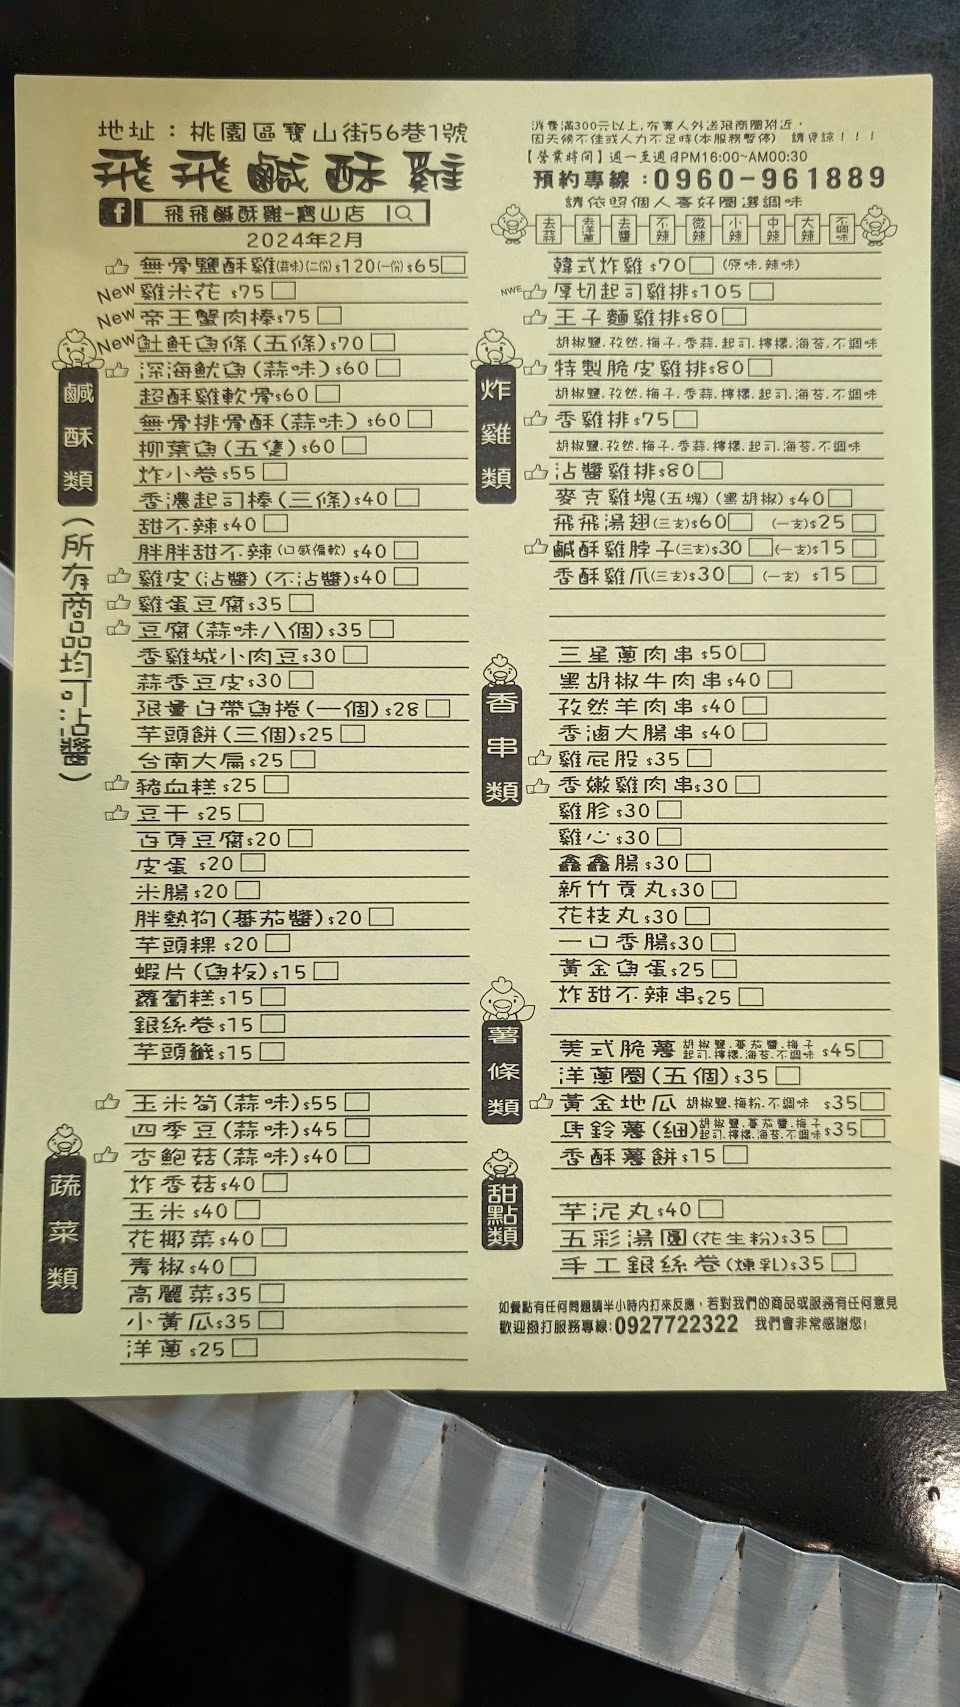 地址：桃園區寶山街56巷1號
飛飛鹹酥雞
飛飛鹹酥雞-寶山店
2024年2月
消費滿300元以上,有專人外送限商圈附近,
因天候不佳或人力不足時(本服務暫停) 請見諒！！！
【營業時間】週一至週日PM16:00~AM00:30
預約專線：0960-961889
請依照個人喜好圈選調味
去蒜 去洋蔥 去醬 不辣 微辣 小辣 中辣 大辣 不調味
鹹酥類
(所有商品均可沾醬)
無骨鹽酥雞(蒜味)(二份)$120(一份)$65
New 雞米花 $75
New 帝王蟹肉棒$75
New 魠魠魚條(五條)$70
深海魷魚(蒜味)$60
超酥雞軟骨$60
無骨排骨酥(蒜味)$60
柳葉魚(五隻)$60
炸小卷$55
香濃起司棒(三條)$40
甜不辣$40
胖胖甜不辣(口感偏軟)$40
雞皮(沾醬)(不沾醬)$40
雞蛋豆腐$35
豆腐(蒜味八個)$35
香雞城小肉豆$30
蒜香豆皮$30
限量白帶魚捲(一個)$28
芋頭餅(三個)$25
台南大扁$25
豬血糕$25
豆干$25
百頁豆腐$20
皮蛋$20
米腸$20
胖熱狗(蕃茄醬)$20
芋頭粿$20
蝦片(魚板)$15
蘿蔔糕$15
銀絲卷$15
芋頭籤$15
蔬菜類
玉米筍(蒜味)$55
四季豆(蒜味)$45
杏鮑菇(蒜味)$40
炸香菇$40
玉米$40
花椰菜$40
青椒$40
高麗菜$35
小黃瓜$35
洋蔥$25
炸雞類
韓式炸雞$70 (原味.辣味)
NWE 厚切起司雞排$105
王子麵雞排$80
胡椒鹽.孜然.梅子.香蒜.起司.檸檬.海苔.不調味
特製脆皮雞排$80
胡椒鹽.孜然.梅子.香蒜.檸檬.起司.海苔.不調味
香雞排$75
胡椒鹽.孜然.梅子.香蒜.檸檬.起司.海苔.不調味
沾醬雞排$80
麥克雞塊(五塊)(黑胡椒)$40
飛飛湯翅(三支)$60 (一支)$25
鹹酥雞脖子(三支)$30 (一支)$15
香酥雞爪(三支)$30 (一支) $15
香串類
三星蔥肉串$50
黑胡椒牛肉串$40
孜然羊肉串$40
香滷大腸串$40
雞屁股$35
香嫩雞肉串$30
雞胗$30
雞心$30
鑫鑫腸$30
新竹貢丸$30
花枝丸$30
一口香腸$30
黃金魚蛋$25
炸甜不辣串$25
薯條類
美式脆薯 胡椒鹽.蕃茄醬.梅子 起司.檸檬.海苔.不調味 $45
洋蔥圈(五個)$35
黃金地瓜 胡椒鹽.梅粉.不調味 $35
馬鈴薯(細) 胡椒鹽.蕃茄醬.梅子 起司.檸檬.海苔.不調味 $35
香酥薯餅$15
甜點類
芋泥丸$40
五彩湯圓(花生粉)$35
手工銀絲卷(煉乳)$35
如餐點有任何問題請半小時內打來反應，若對我們的商品或服務有任何意見
歡迎撥打服務專線:0927722322 我們會非常感謝您!